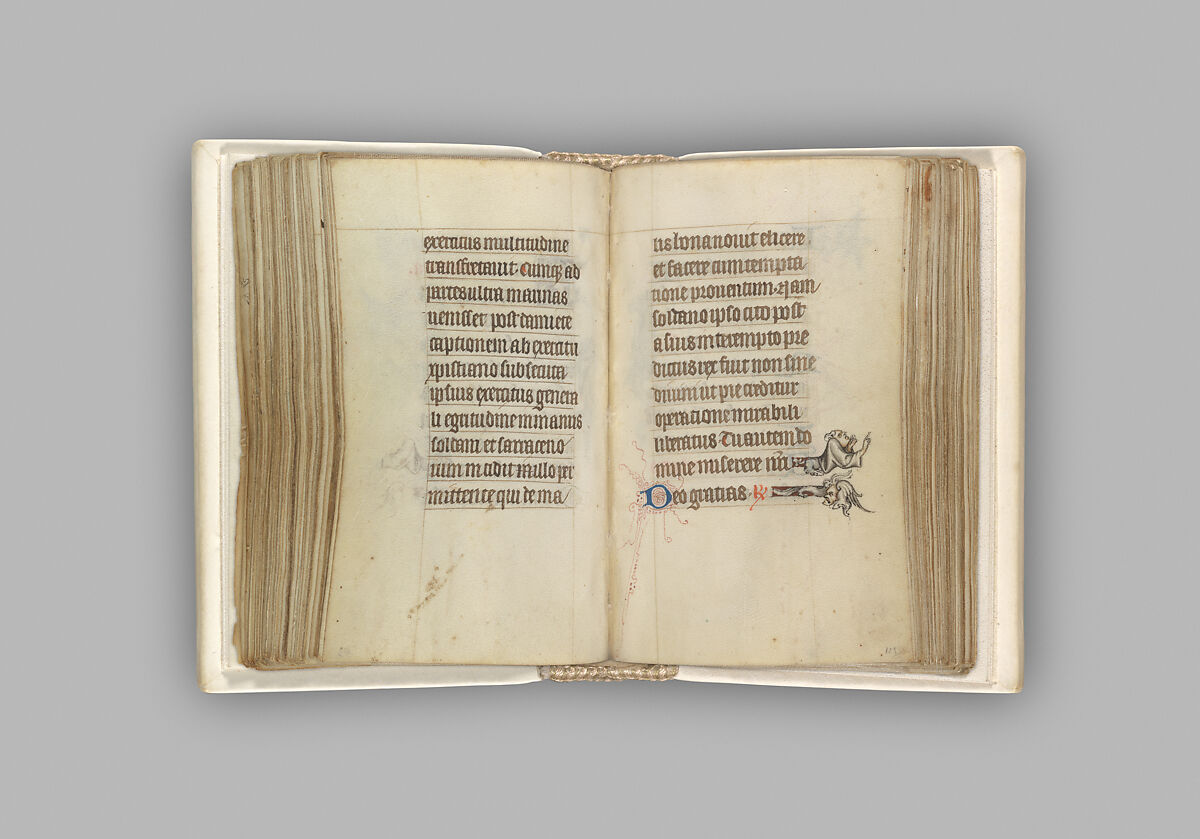 exercitus multitudine
transfretavit. cumq; ad
partes ultra marinas
venisset post damiete
captionem ab exercitu
xpistiano subsecuta
ipsius exercitus genera
li egritudine in manus
soldani et sarraceno
rum incidit nullo per
mittente qui de ma
lis bona novit elicere
et facere cum tempta
tione proventum. Nam
soldano ipso cito post
a suis interempto pre
dictus rex fuit non sine
divini ut pie creditur
operatione mirabili
liberatus. Tu autem do
mine miserere nri
Deo gratias. R